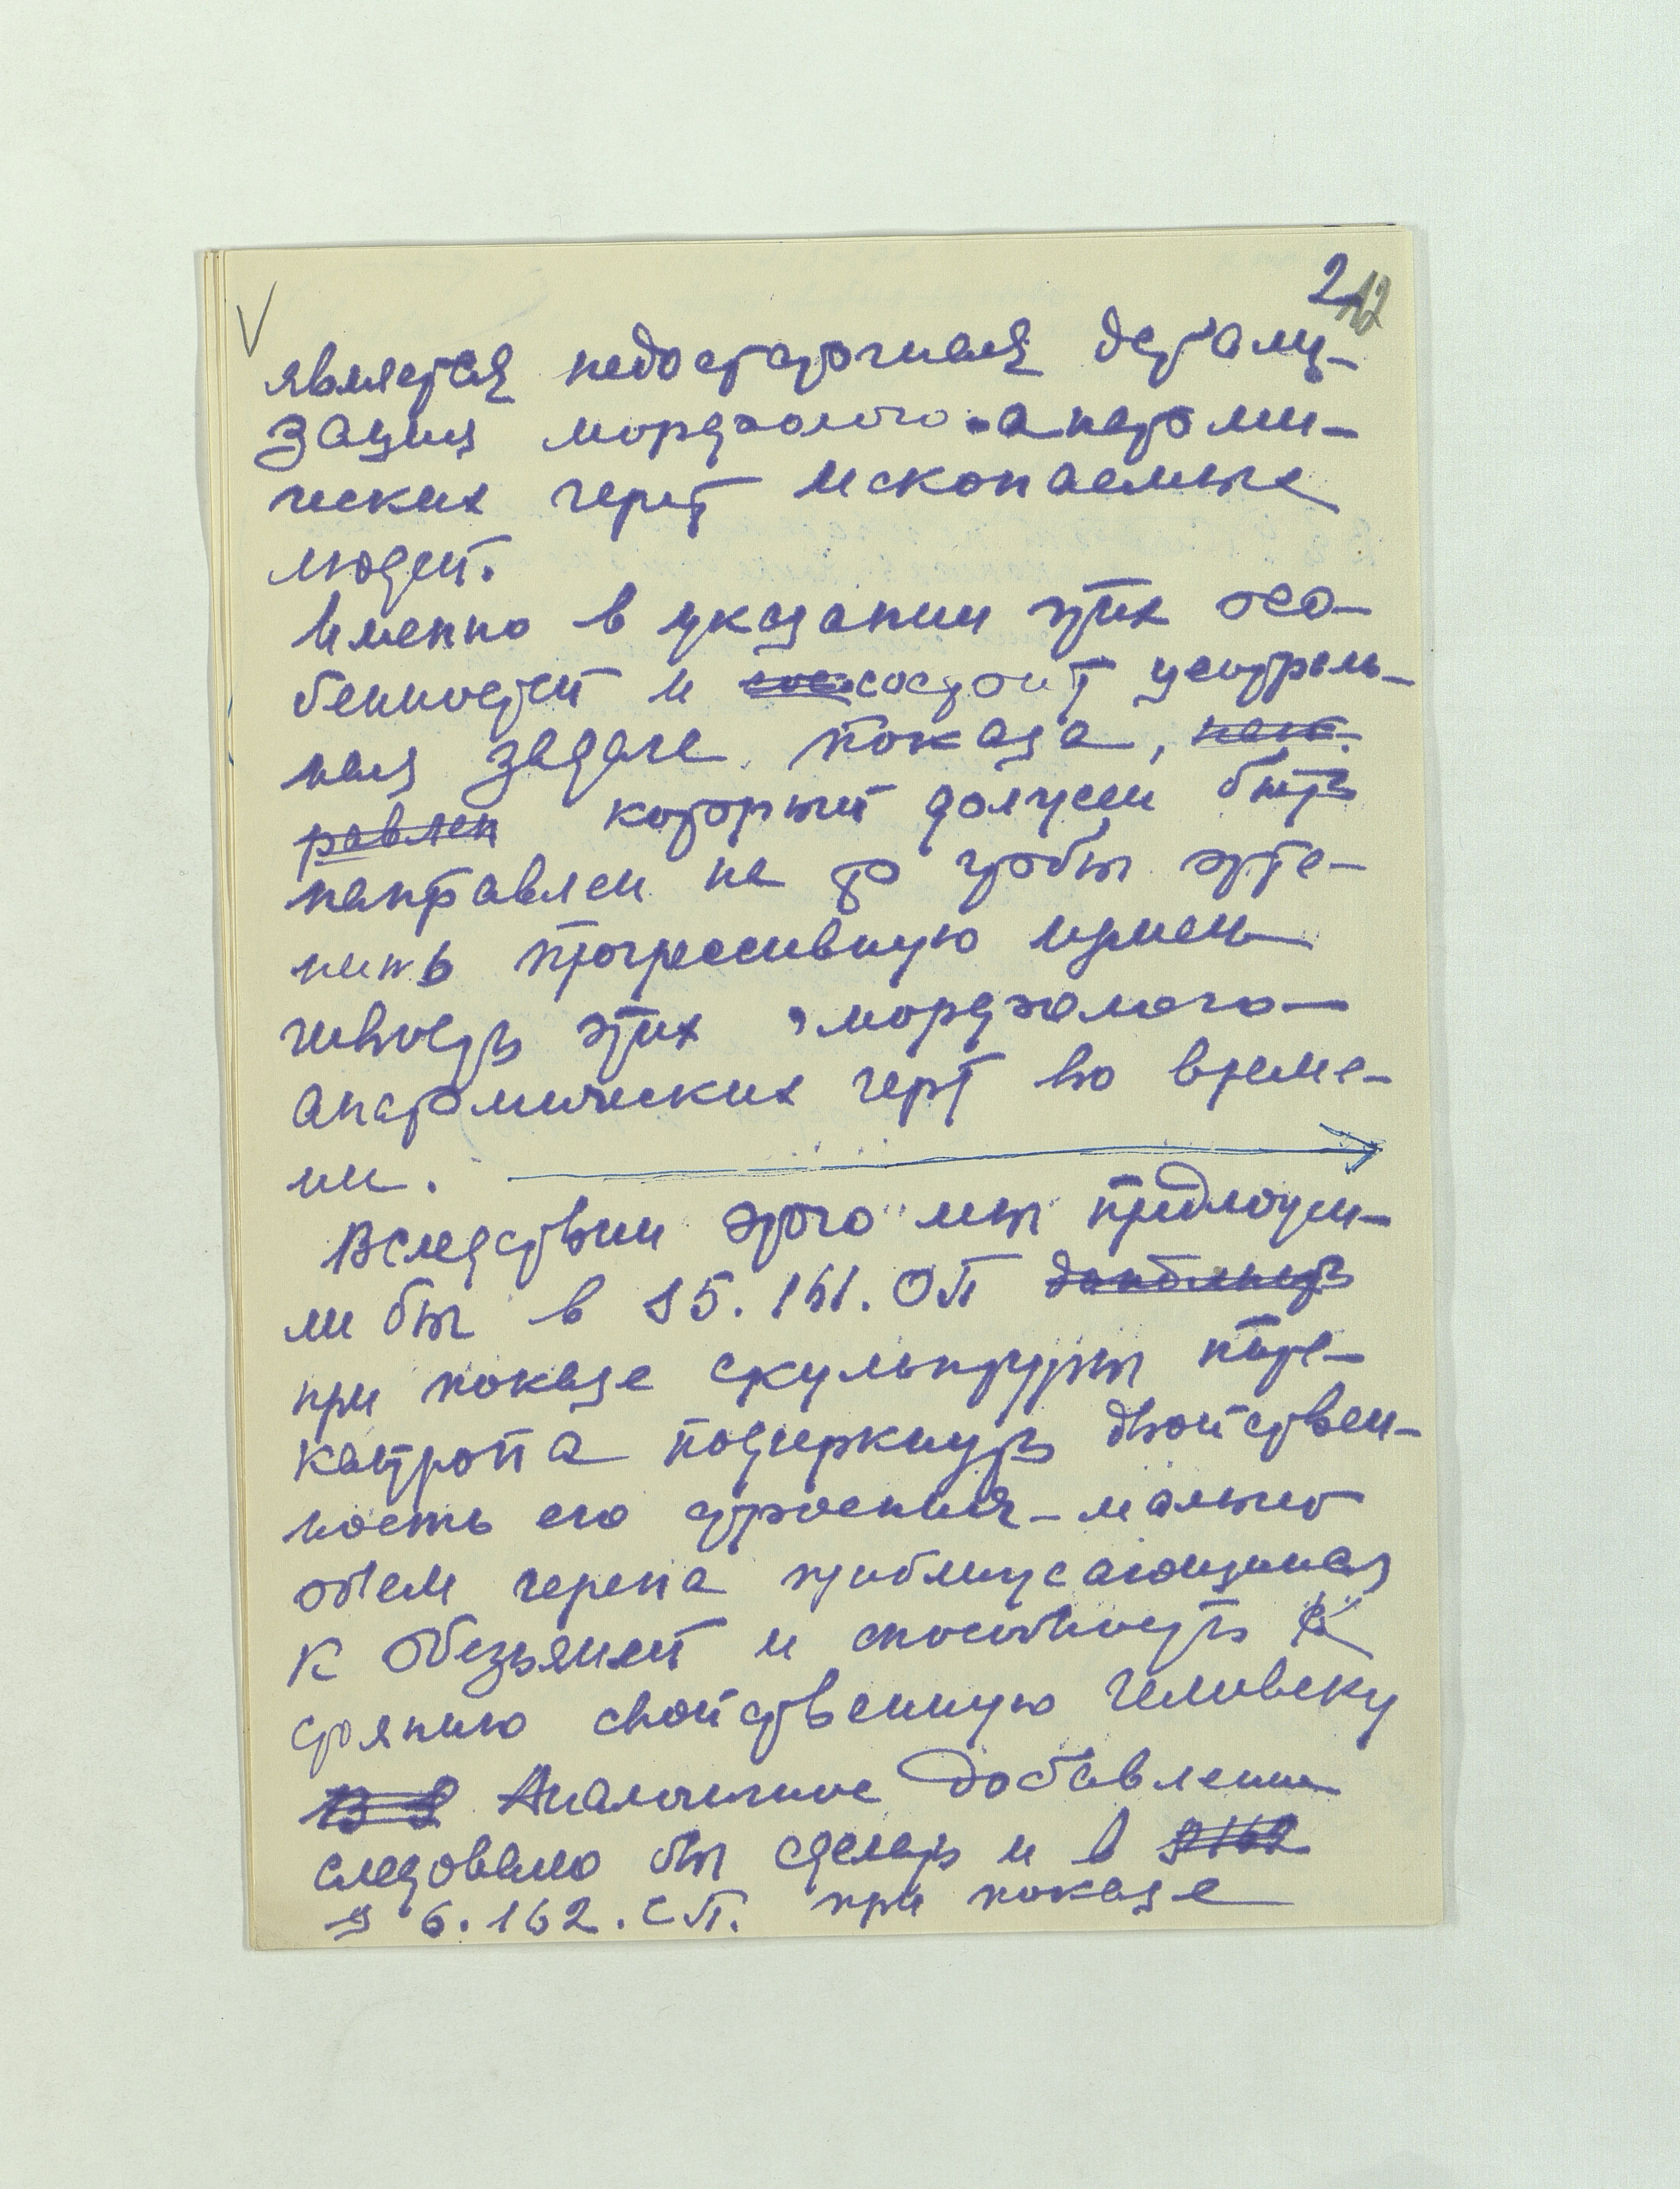 2
12
V
является недостаточная детали-
зация морфолого-анатоми-
ческих черт ископаемых
людей.
Именно в указании этих осо-
бенностей и сос состоит централь-
ная задача показа, нап-
равлен который должен быть
направлен на то чтобы отте-
нить прогрессивную измен
чивость этих морфолого-
анатомических черт во време-
ни.
Вследствии этого мы предложи-
ли бы в §5.161.ОП
при показе скульптуры пите-
кантропа подчеркнуть двойствен-
ность его строения - малый
объем черепа приближающийся
к обезьяней и способность к
стоянию свойственную человеку
В § Аналогичное добавление
следовало бы сделать и в §162
§ 6.162.СП. при показе